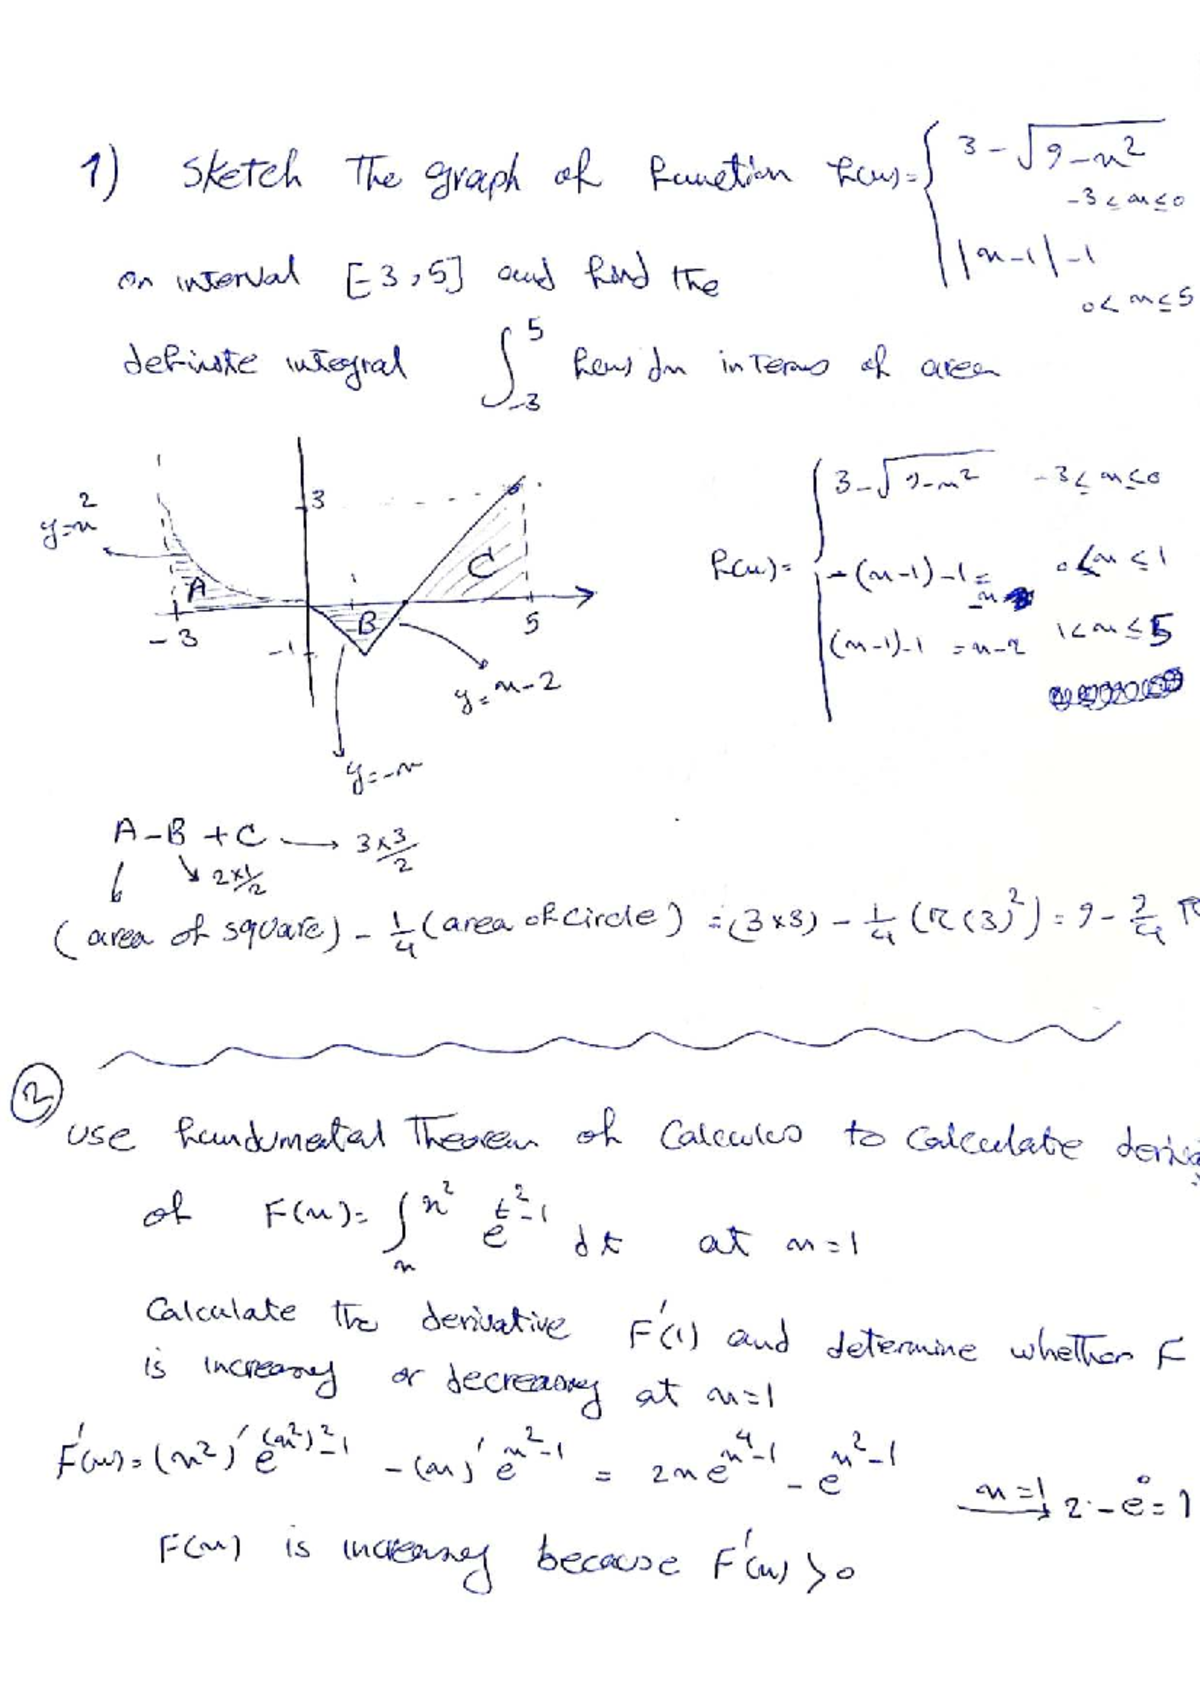 1) Sketch The graph of function h(x) = { 3 - √(9-x²) -3 ≤ x ≤ 0
|x-1| - 1 0 < x ≤ 5
on interval [-3, 5] and find the
definite integral ∫₋₃⁵ h(x) dx in terms of area
y=x²
3
A
B
C
-3
-1
5
y=x-2
y=-x
h(x) = { 3 - √(9-x²) -3 ≤ x ≤ 0
-(x-1)-1 = -x 0 < x ≤ 1
(x-1)-1 = x-2 1 < x ≤ 5
A - B + C → 3×3/2
2×1/2
(area of square) - 1/4 (area of circle) = (3×3) - 1/4 (π(3)²) = 9 - 9/4 π
2
use fundumental Theorem of Calculus to calculate
of F(x) = ∫ₓ^(x²) e^(t²-1) dt at x=1
Calculate the derivative F'(1) and determine whether F
is increasing or decreasing at x=1
F'(x) = (x²)' e^((x²)²-1) - (x)' e^(x²-1) = 2x e^(x⁴-1) - e^(x²-1) x=1 → 2 - e⁰ = 1
F(x) is increasing because F'(x) > 0